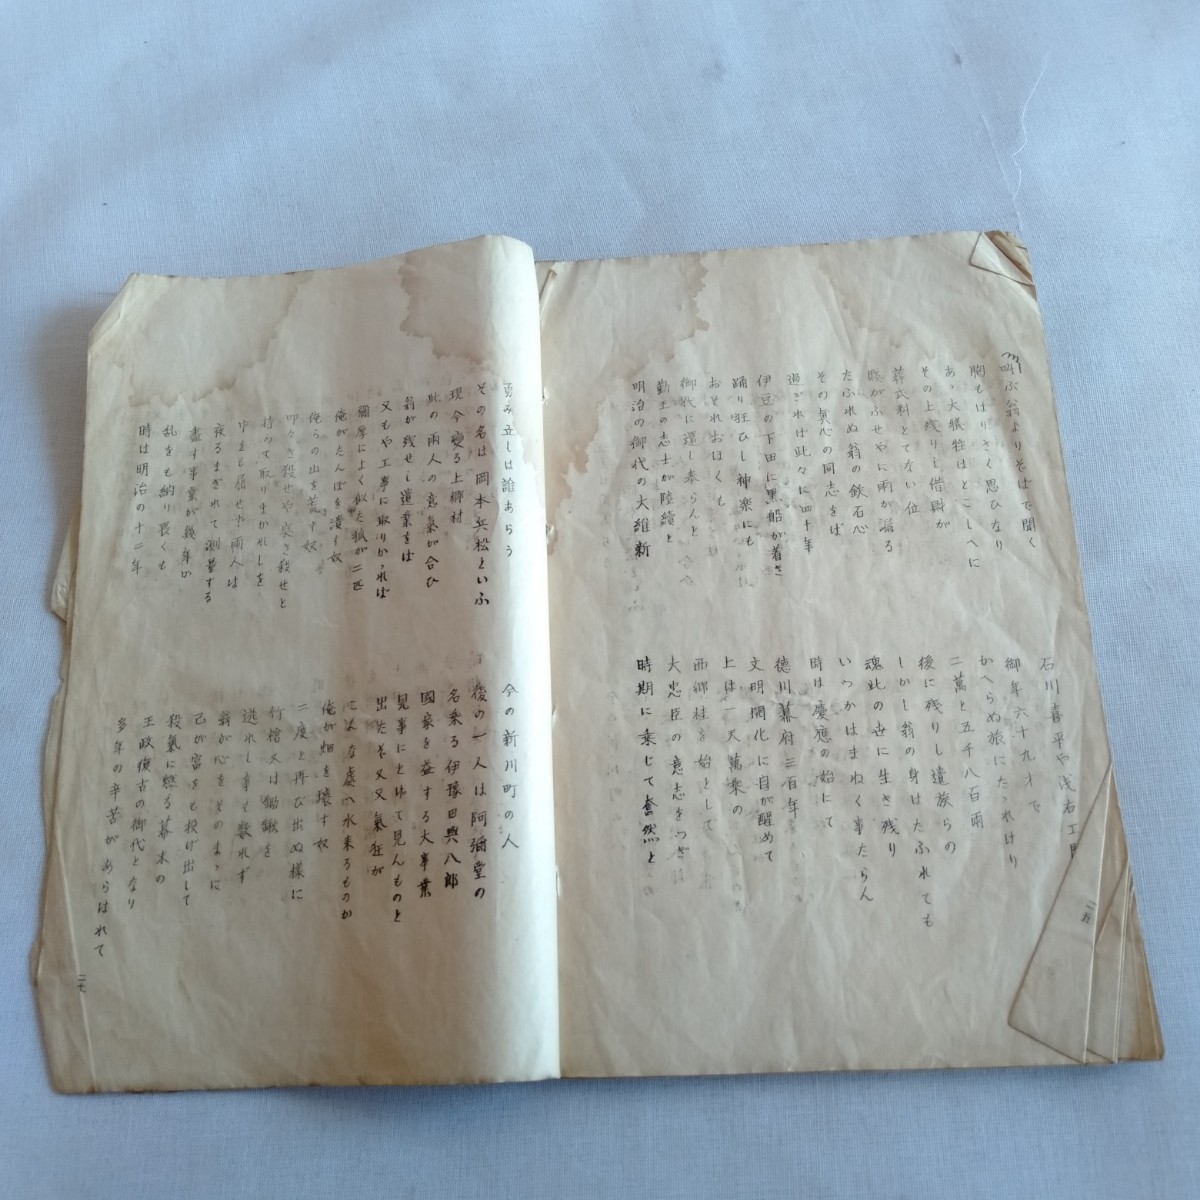 叫ぶ翁よりそばで聞く
石川喜平や浅右エ
胸もはりさく思ひなり
御年六十九才で
あゝ大犠牲はとこしへに
かへらぬ旅にたゝれけり
その上残りし借財が
二萬と五千八百両
葬式料とてない位
後に残りし遺族らの
がふせやに雨が漏る
しかし翁の身はたふれても
たふれぬ翁の鉄石心
魂此の世に生き残り
その真心の同志をば
いつかはまねく事たらん
過ぎれば此々に四十年
時は慶應の始にて
伊豆の下田に黒船が着き
徳川幕府三百年
踊り狂ひし神楽にも
文明開化に目が醒めて
おそれおほくも
上は一天萬乗の
御代に還し奉らんと
西郷桂を始として
勤王の志士が陸續と
大忠臣の意志をつぎ
明治の御代の大維新
時期に乗じて奮然と
勇み立しは誰あらう
今の新川町の人
その名は岡本兵松といふ
後の一人は阿彌堂の
現今変る上郷村
名乗る伊豫田與八郎
此の両人の意氣が合ひ
國家を益する大事業
翁が残せし遺業をば
見事にとげて見んものと
又もや工事に取りかゝれば
出たぞ又又氣狂が
によく似た狐が二匹
こんな處へ水来るものか
俺がたんぼを潰す奴
俺が畑を壊す奴
俺らの山を荒す奴
二度と再び出ぬ様に
叩き殺せや突き殺せと
竹槍又は鋤鍬を
持つて取りまかれしを
逃れし事も数れず
せず両人は
翁が心をそのまゝに
夜るまぎれて測量する
己が富をも投げ出して
盡す事業が幾年か
殺氣に燃る幕末の
乱をも納り畏くも
王政復古の御代となり
時は明治の十二年
多年の辛苦があらはれて
二七